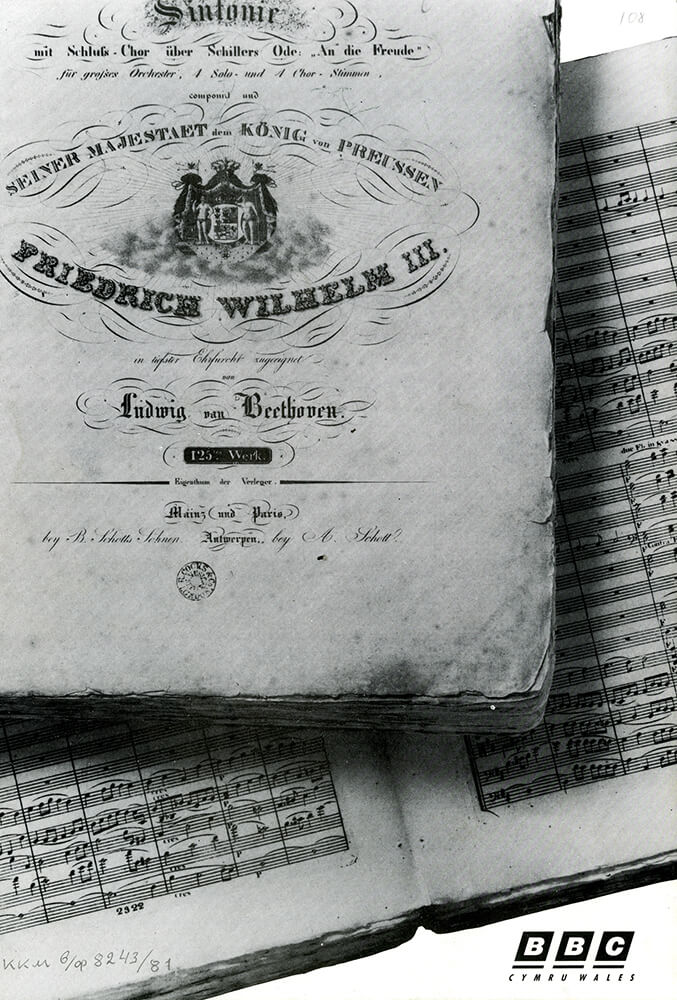 108
Sinfonie
mit Schluſs-Chor über Schillers Ode: „An die Freude"
für groſses Orchester, 4 Solo- und 4 Chor-Stimmen,
componirt und
SEINER MAJESTAET dem KÖNIG von PREUSSEN
FRIEDRICH WILHELM III.
in tiefster Ehrfurcht zugeeignet
von
Ludwig van Beethoven.
125tes Werk.
Eigenthum der Verleger.
Mainz und Paris,
bey B. Schotts Söhnen. Antwerpen, bey A. Schott.
LONDON
2322
ККМ в/ф 8243/81
BBC
CYMRU WALES